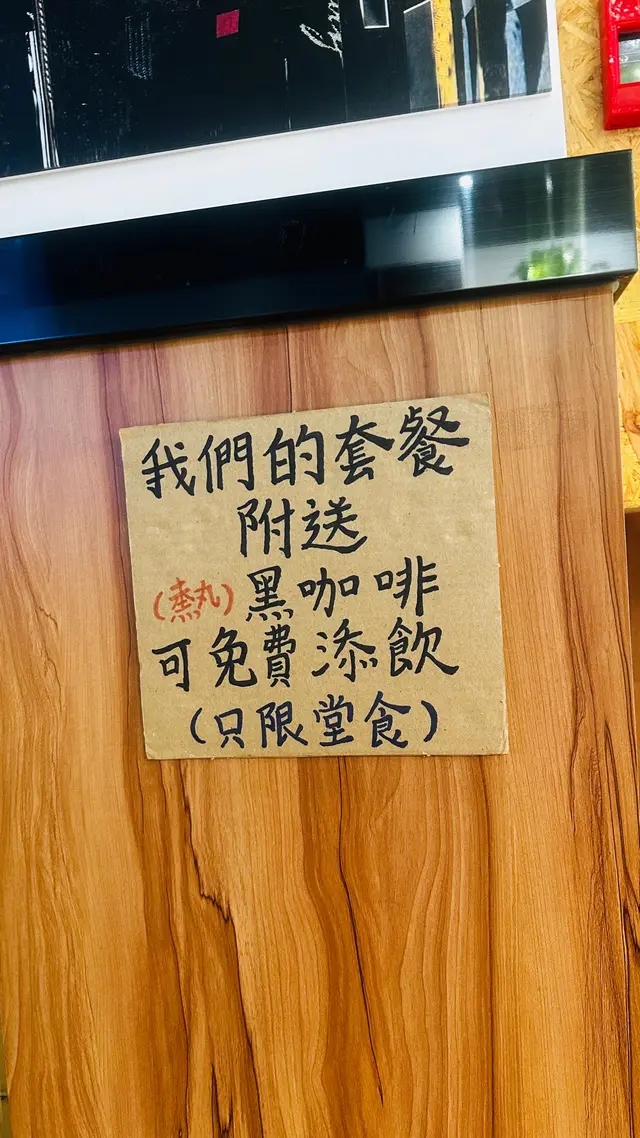 我們的套餐
附送
(熱)黑咖啡
可免費添飲
(只限堂食)